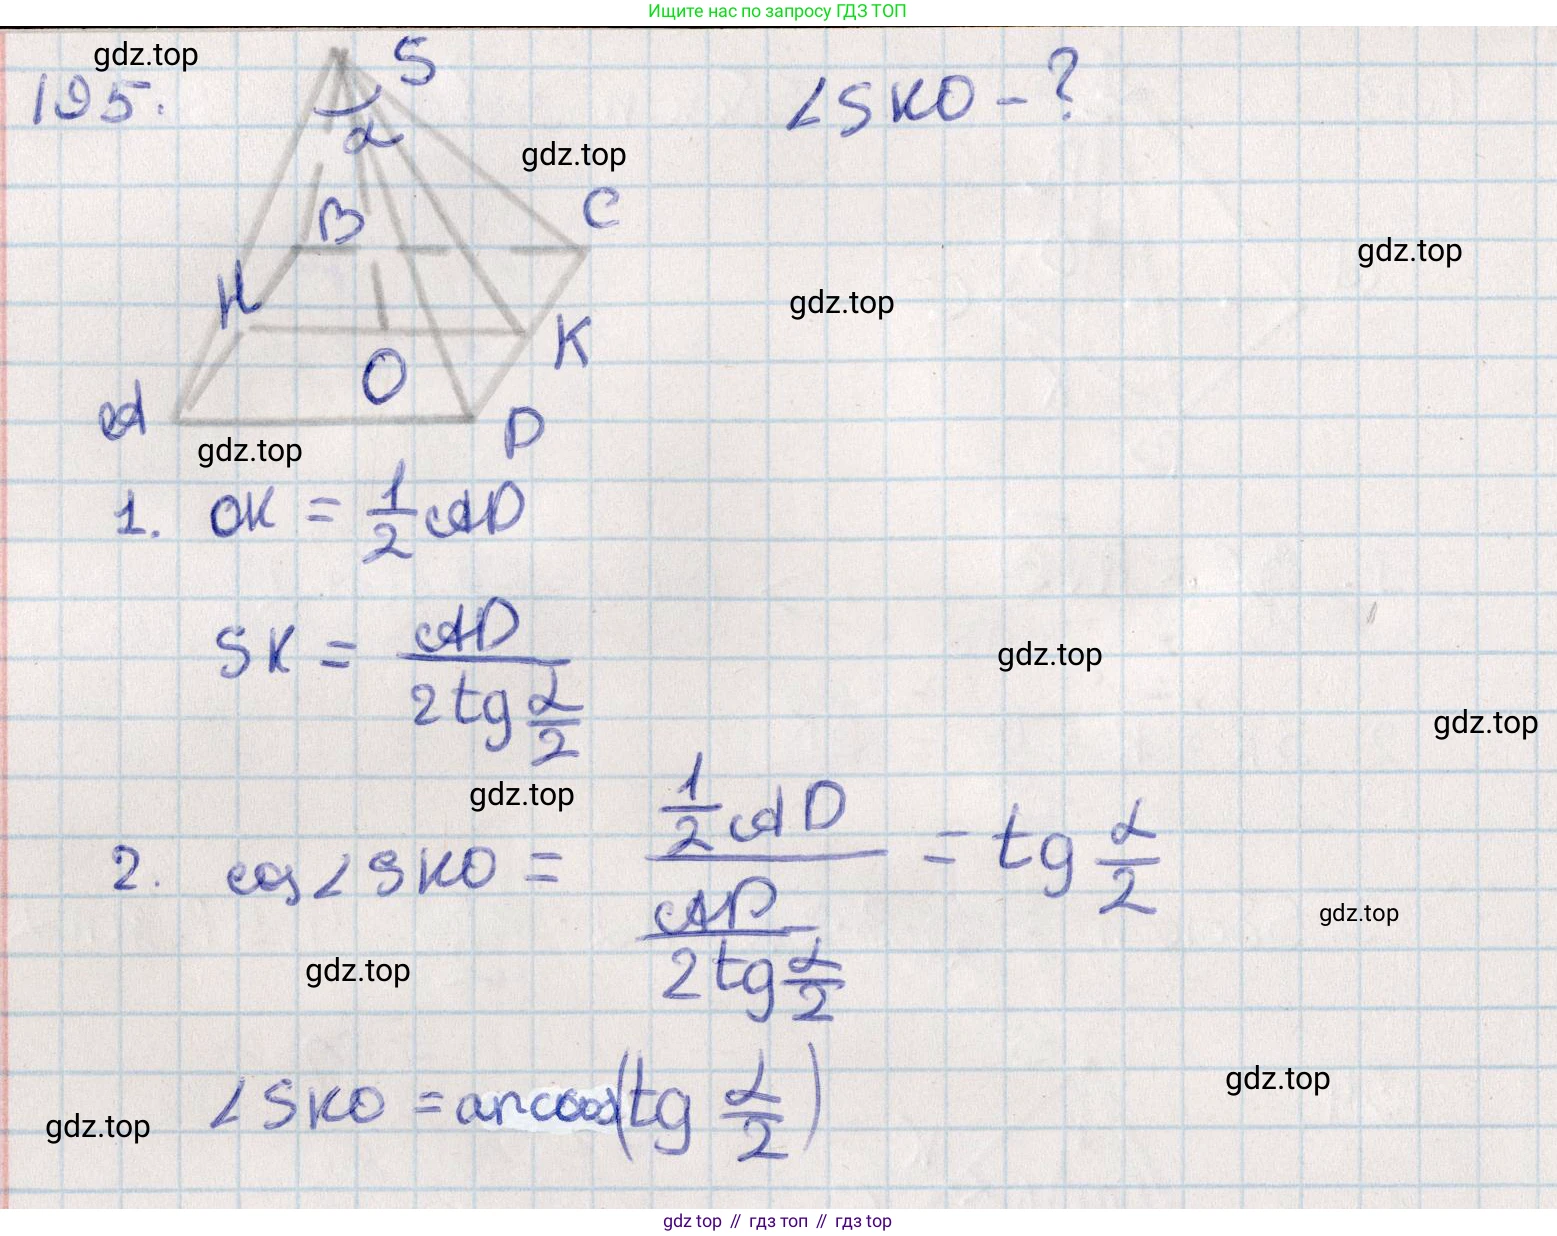 Ищите нас по запросу ГДЗ ТОП
gdz.top
195.
S
∠SKO - ?
α
gdz.top
B
C
gdz.top
H
gdz.top
K
O
A
D
gdz.top
1. OK = 1/2 AD
SK = AD / (2 tg α/2)
gdz.top
gdz.top
gdz.top
2. cos ∠SKO = (1/2 AD) / (AD / (2 tg α/2)) = tg α/2
gdz.top
gdz.top
∠SKO = arccos(tg α/2)
gdz.top
gdz.top
gdz top // гдз топ // гдз top